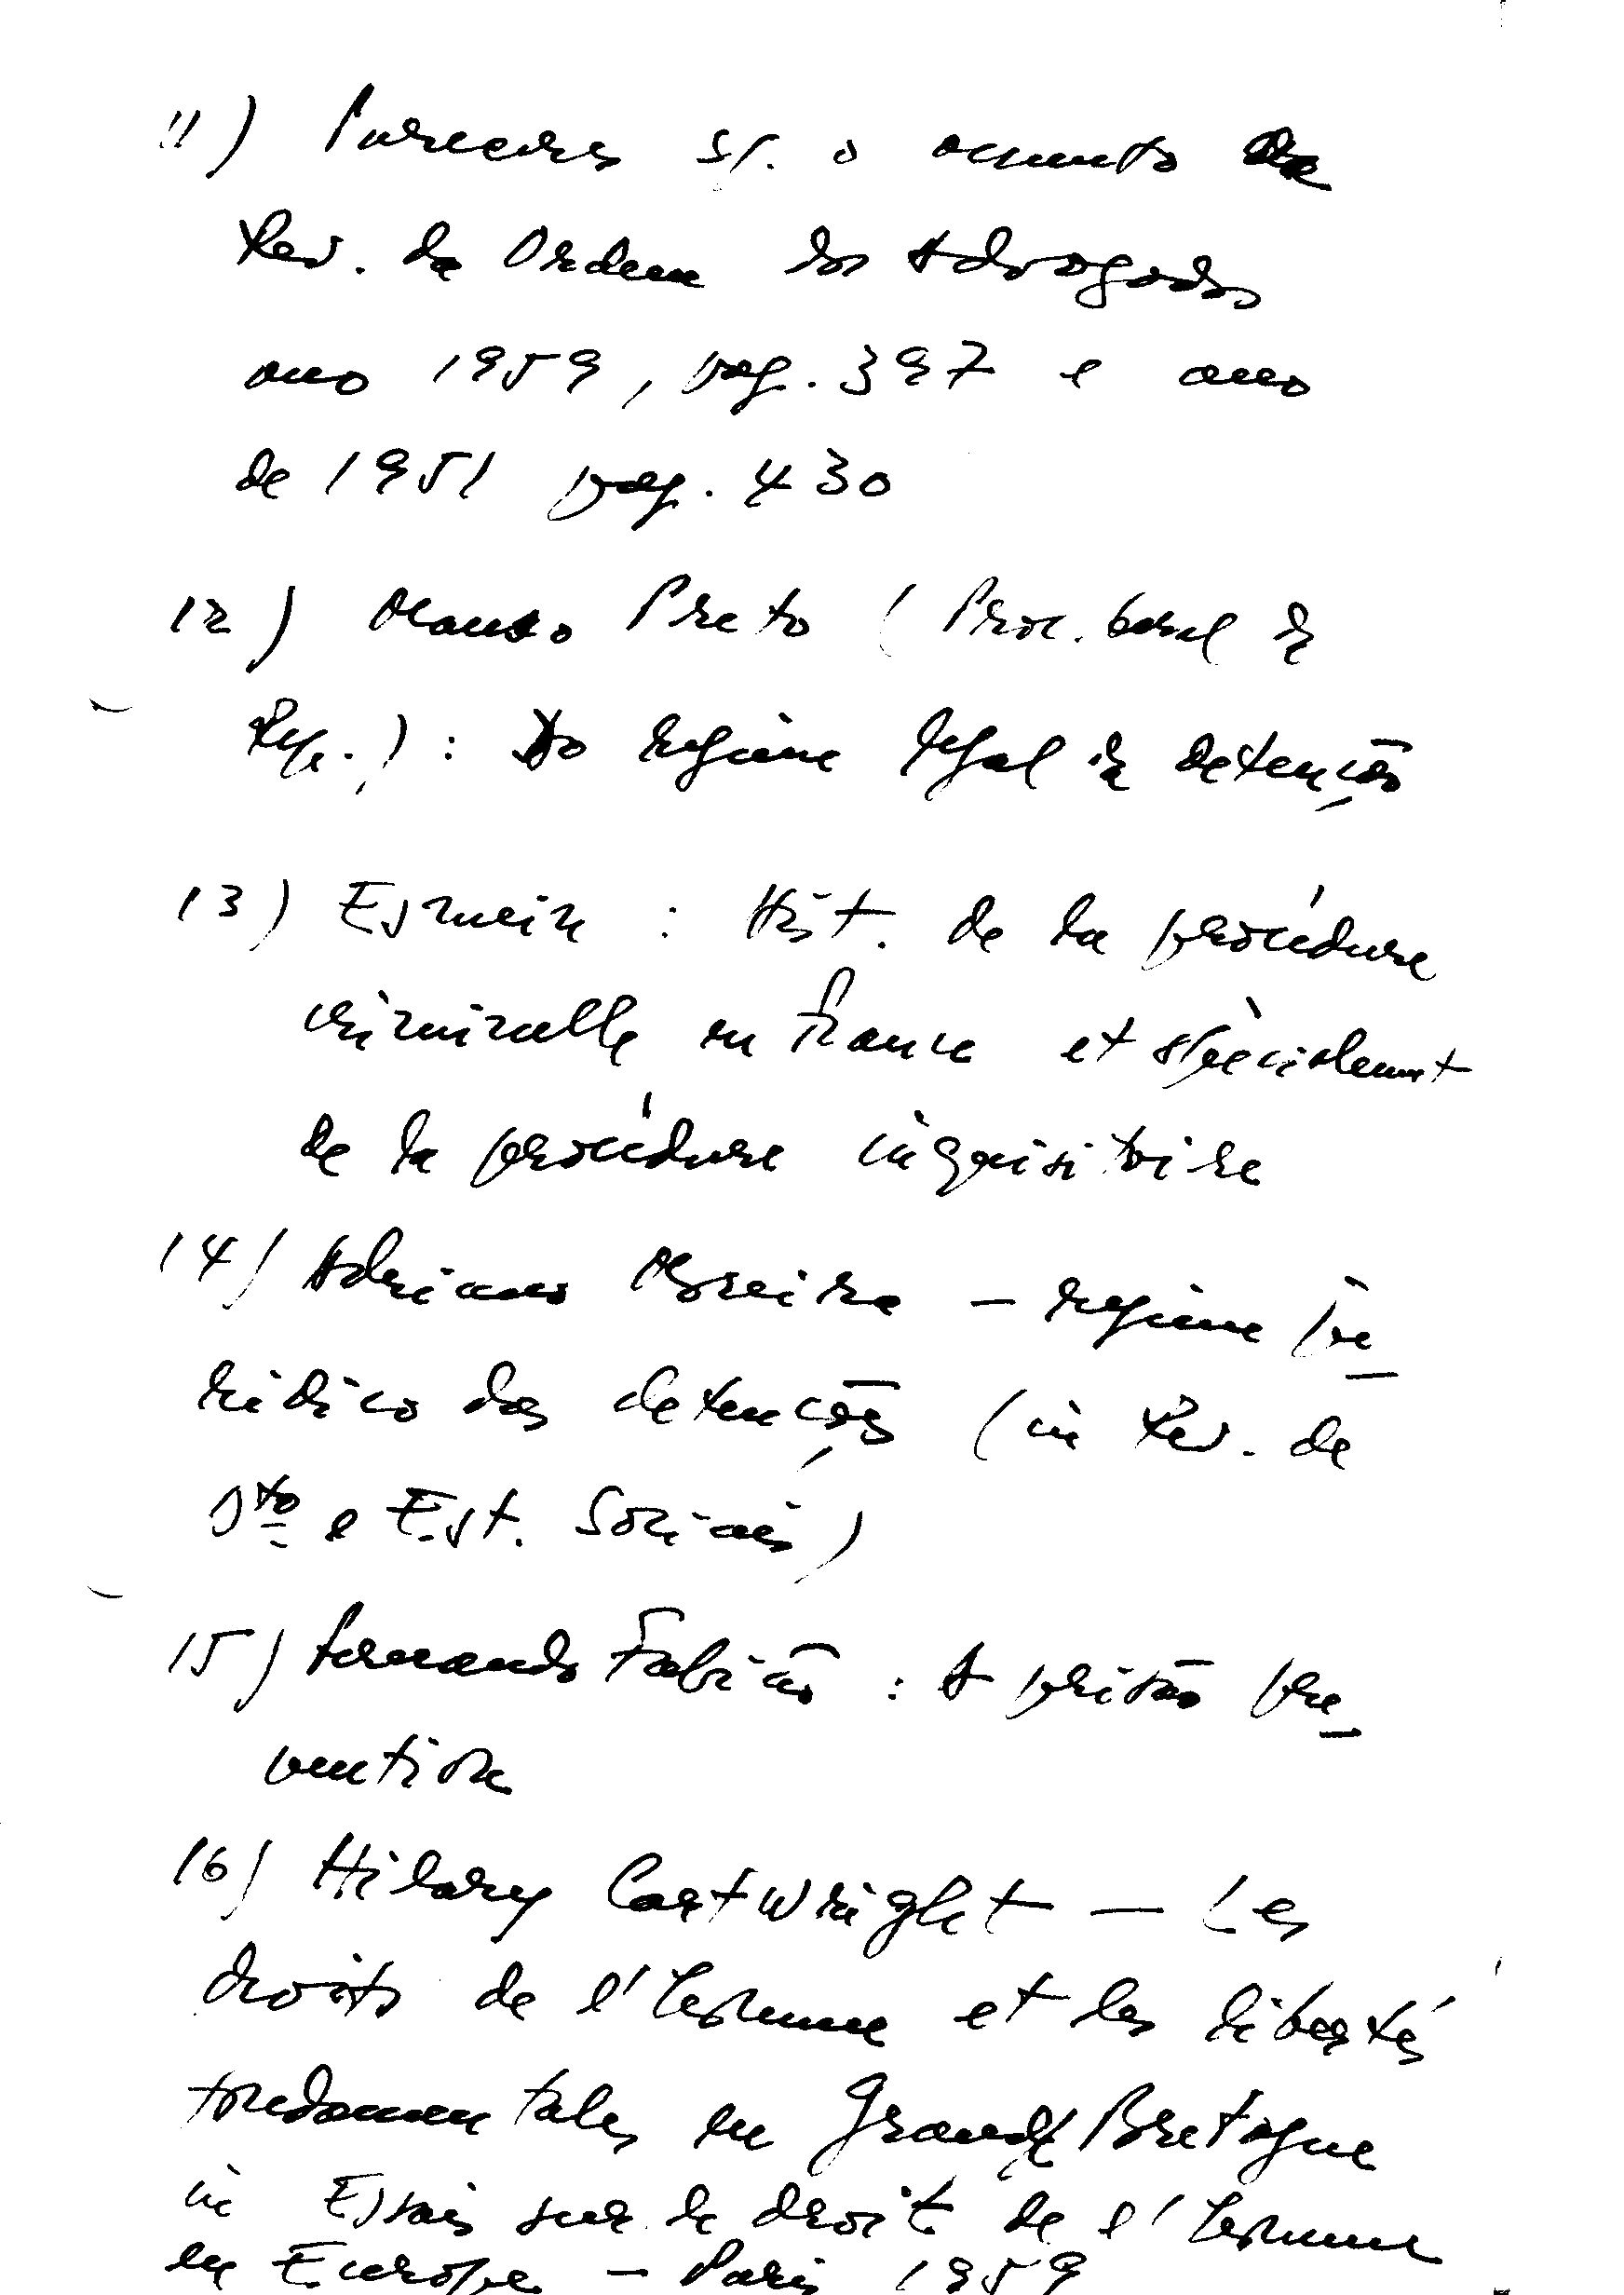 11) Pareceres s/. o assunto da
Rev. da Ordem dos Advogados
ano 1959, pag. 397 e ano
de 1951 pag. 430
12) Manso Preto (Proc. Geral da
Rep.) : Do regime legal da detenção
13) Esmein : Hist. de la procédure
criminelle en France et spècialement
de la procédure inquisitoire
14) Adriano Moreira – regime ju_
ridico das detenções (in Rev. de
Dto e Est. Sociais)
15) Fernando Fabião : A prisão pre_
ventiva
16) Hilary Cartwright – Les
droits de l'homme et les libertés
fondamentales en Grande Bretagne
in Essais sur le droit de l'homme
en Europe – Paris 1959